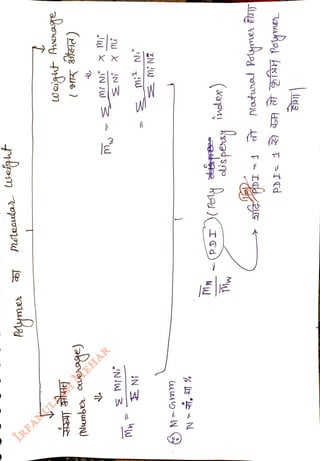 Polymer का Molecular Weight
संख्या औसत
(Number average)
M̅n = Σ MiNi / Σ Ni
Weight Average
(भार औसत)
M̅w = Σ MiNi × mi / Σ Ni × mi
= Σ mi² Ni / Σ mi Ni
M = Gramm
N = सं. या %
M̅n / M̅w = PDI (Poly dispersy index)
→ यदि PDI = 1 तो Natural Polymer होगा
PDI = 1 से कम तो कृत्रिम Polymer
होगा।
IRFANULLAH MEHAR